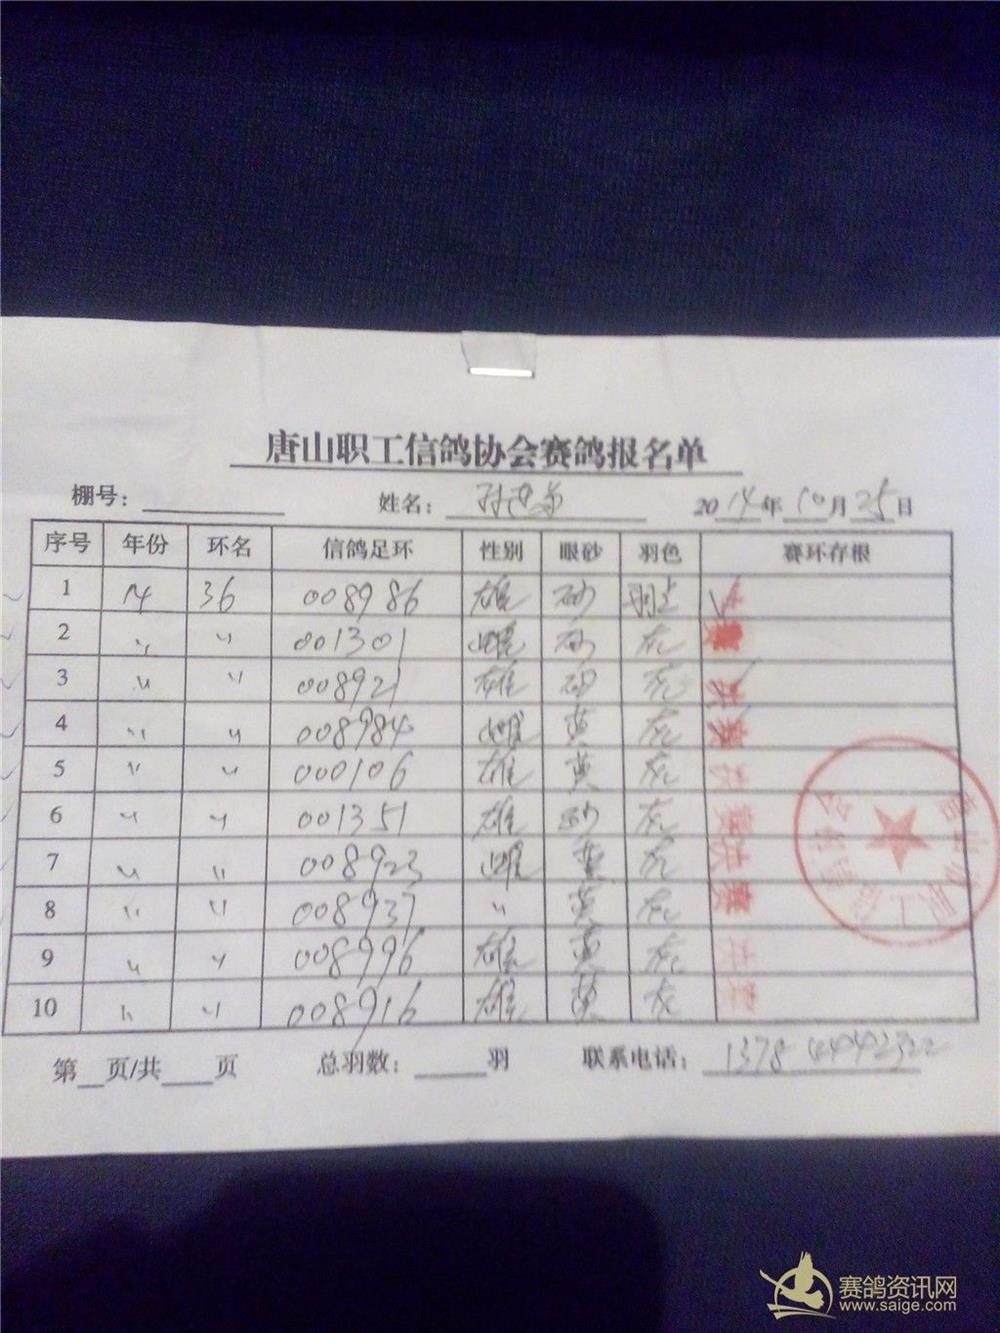 唐山职工信鸽协会赛鸽报名单
棚号： 姓名： 2014年10月25日
序号 年份 环名 信鸽足环 性别 眼砂 羽色 赛环存根
1 14 36 008986 雄 砂
2 〃 〃 001301 雌 砂 灰
3 〃 〃 008921 雄 砂 灰
4 〃 〃 008984 雌 黄 灰
5 〃 〃 000106 雄 黄 灰
6 〃 〃 001351 雄 砂 灰
7 〃 〃 008923 雌 黄 灰
8 〃 〃 008937 〃 黄 灰
9 〃 〃 008996 雄 黄 灰
10 〃 〃 008916 雄 黄 灰
第 页/共 页 总羽数： 羽 联系电话：
赛鸽资讯网
www.saige.com